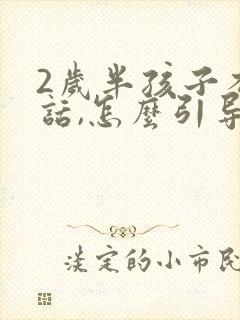 2歲半孩子不
話,怎麼引导
淡定的小市民